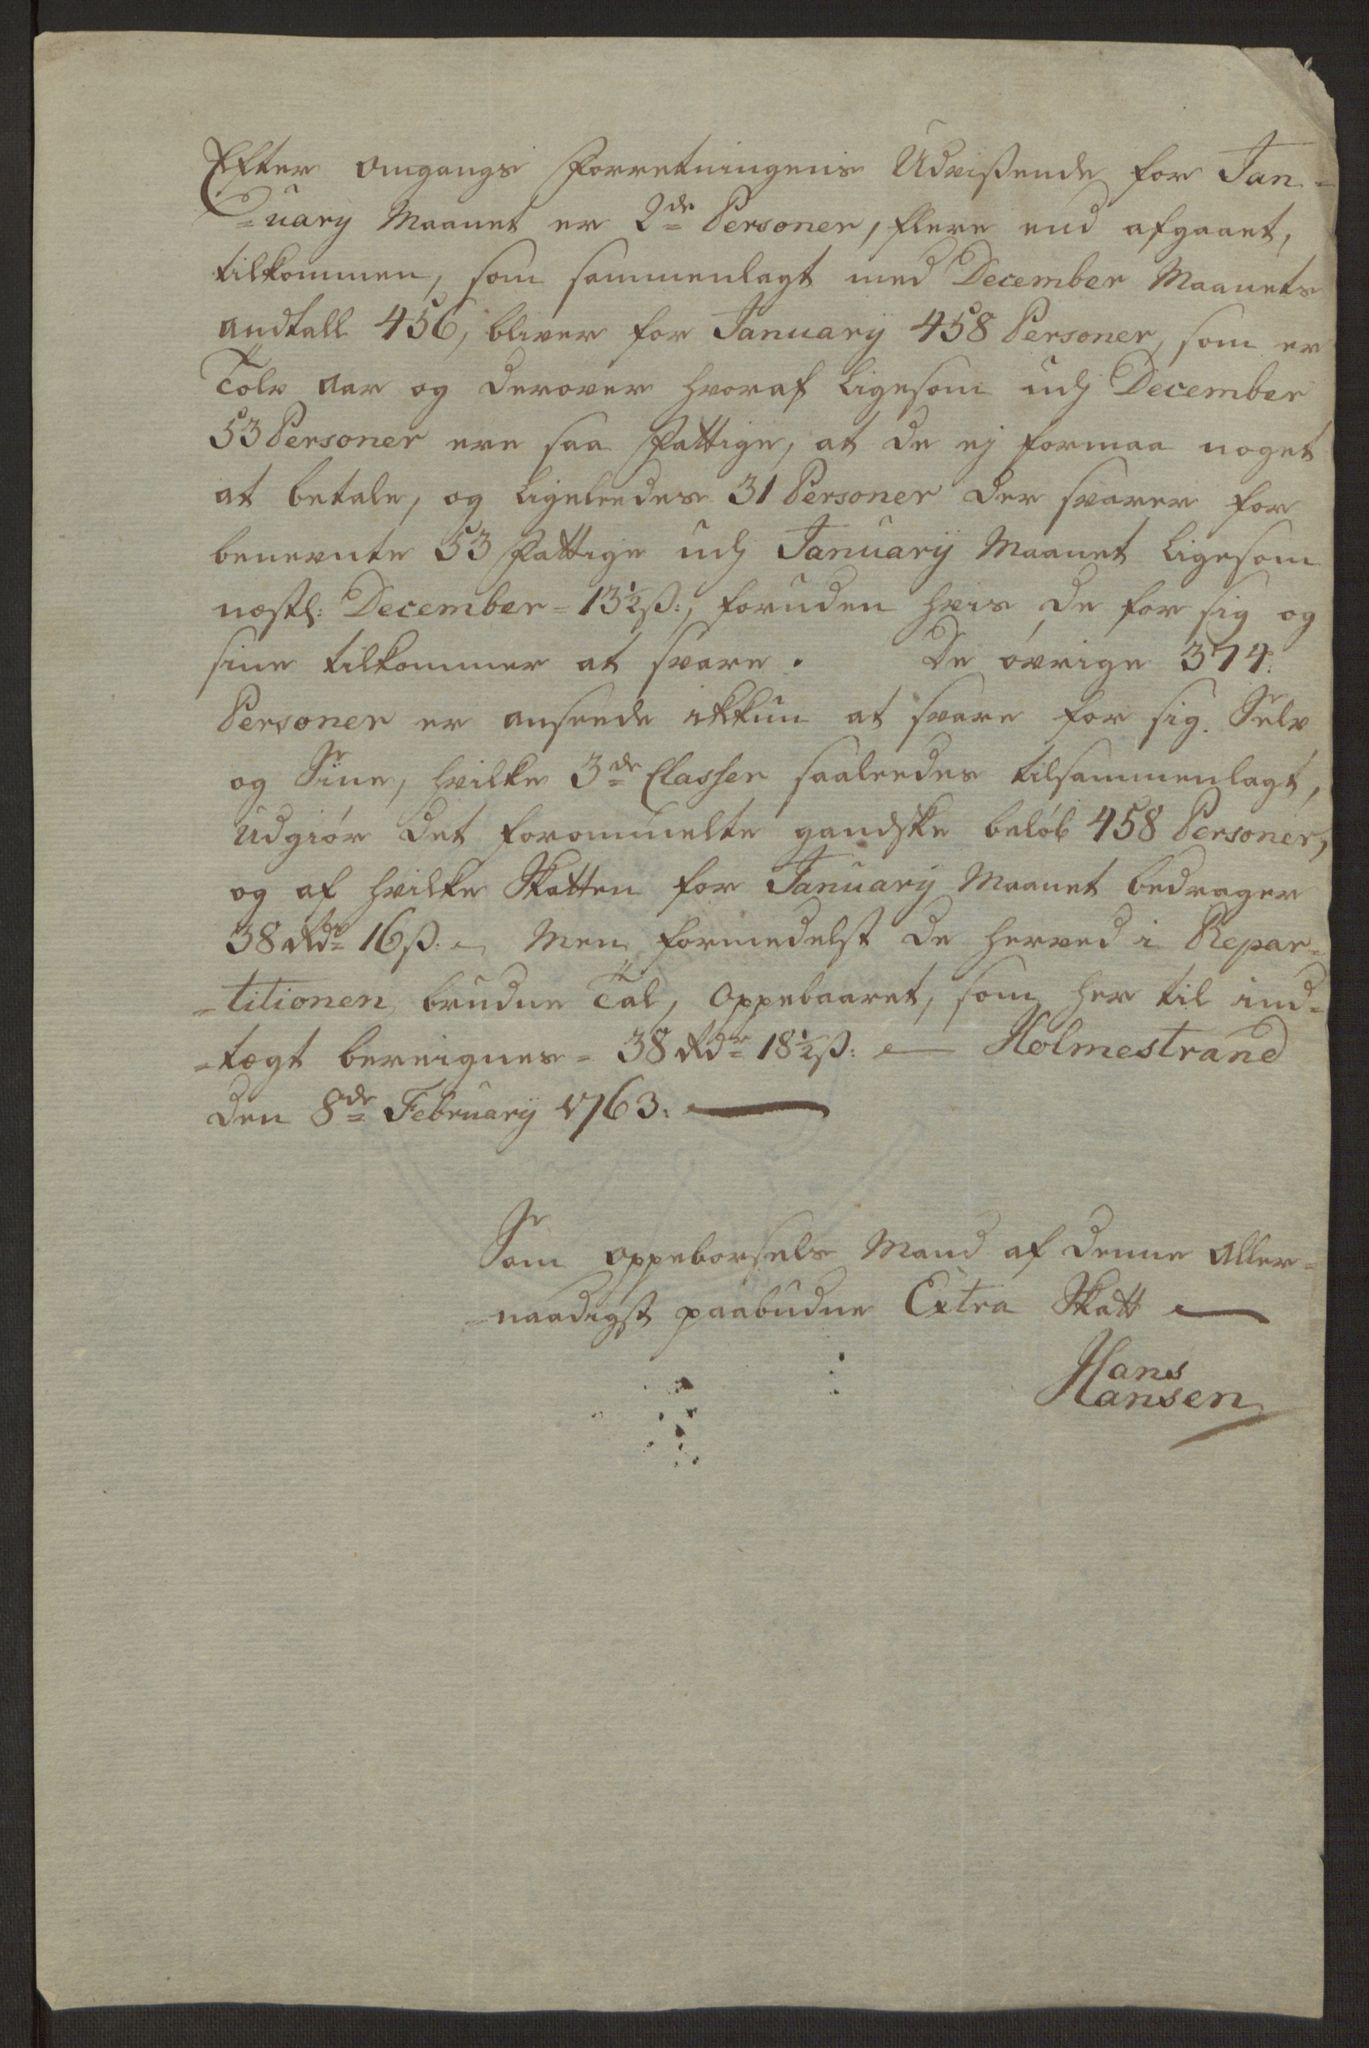 Efter Omgangs Forretningens Udvißende for Jan-
-uary Maanet er 2de Personer, flere end afgaaet,
tilkommen, som sammenlagt med December Maanets
Andtall 456, bliver for January 458 Personer, som er
Tolv Aar og derover hvoraf ligesom udj December
53 Personer ere saa Fattige, at de ej formaa noget
at betale, og ligeleedes 31 Personer der svarer for
benevnte 53 Fattige udj January Maanet ligesom
næstl: December = 13½ ß:, foruden hvis de for sig og
sine tilkommer at svare. De øvrige 374.
Personer er anseede ikkun at svare for sig Selv
og Sine, hvilke 3de Classer saaleedes tilsammenlagt,
udgiør det forommelte gandske beløb 458 Personer,
og af hvilke Skatten for January Maanet bedrager
38 Rdr 16 ß. Men formedelst de herved i Repar-
-titionen brudne Tal, Oppebaaret, som her til ind-
-tægt bereignes = 38 Rdr 18½ ß: — Holmestrand
den 8de February 1763. —
Som Oppeborsels Mand af denne Aller-
-naadigst paabudne Extra Skatt —
Hans
Hansen